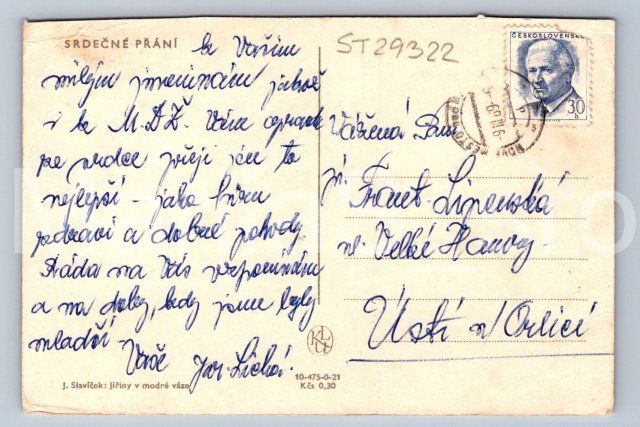 SRDEČNÉ PŘÁNÍ
k Vašim
milým jmeninám jakož
i k M.D.Ž. Vám opravdu
ze srdce přeji jen to
nejlepší - jako hůru
zdraví a dobré pohody
Ráda na Vás vzpomínám
a na doby, kdy jsme byly
mladší
Vaše Jar. Lichá.
J. Slavíček: Jiřiny v modré váze
10-475-0-21
Kčs 0,30
ST29322
ČESKOSLOVENSKO
30
Vážená Paní
Frant. Lipenská
Velké Hamry
Ústí n/Orlicí